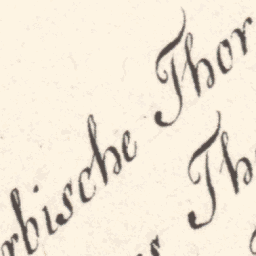 rbische Thor
s Th